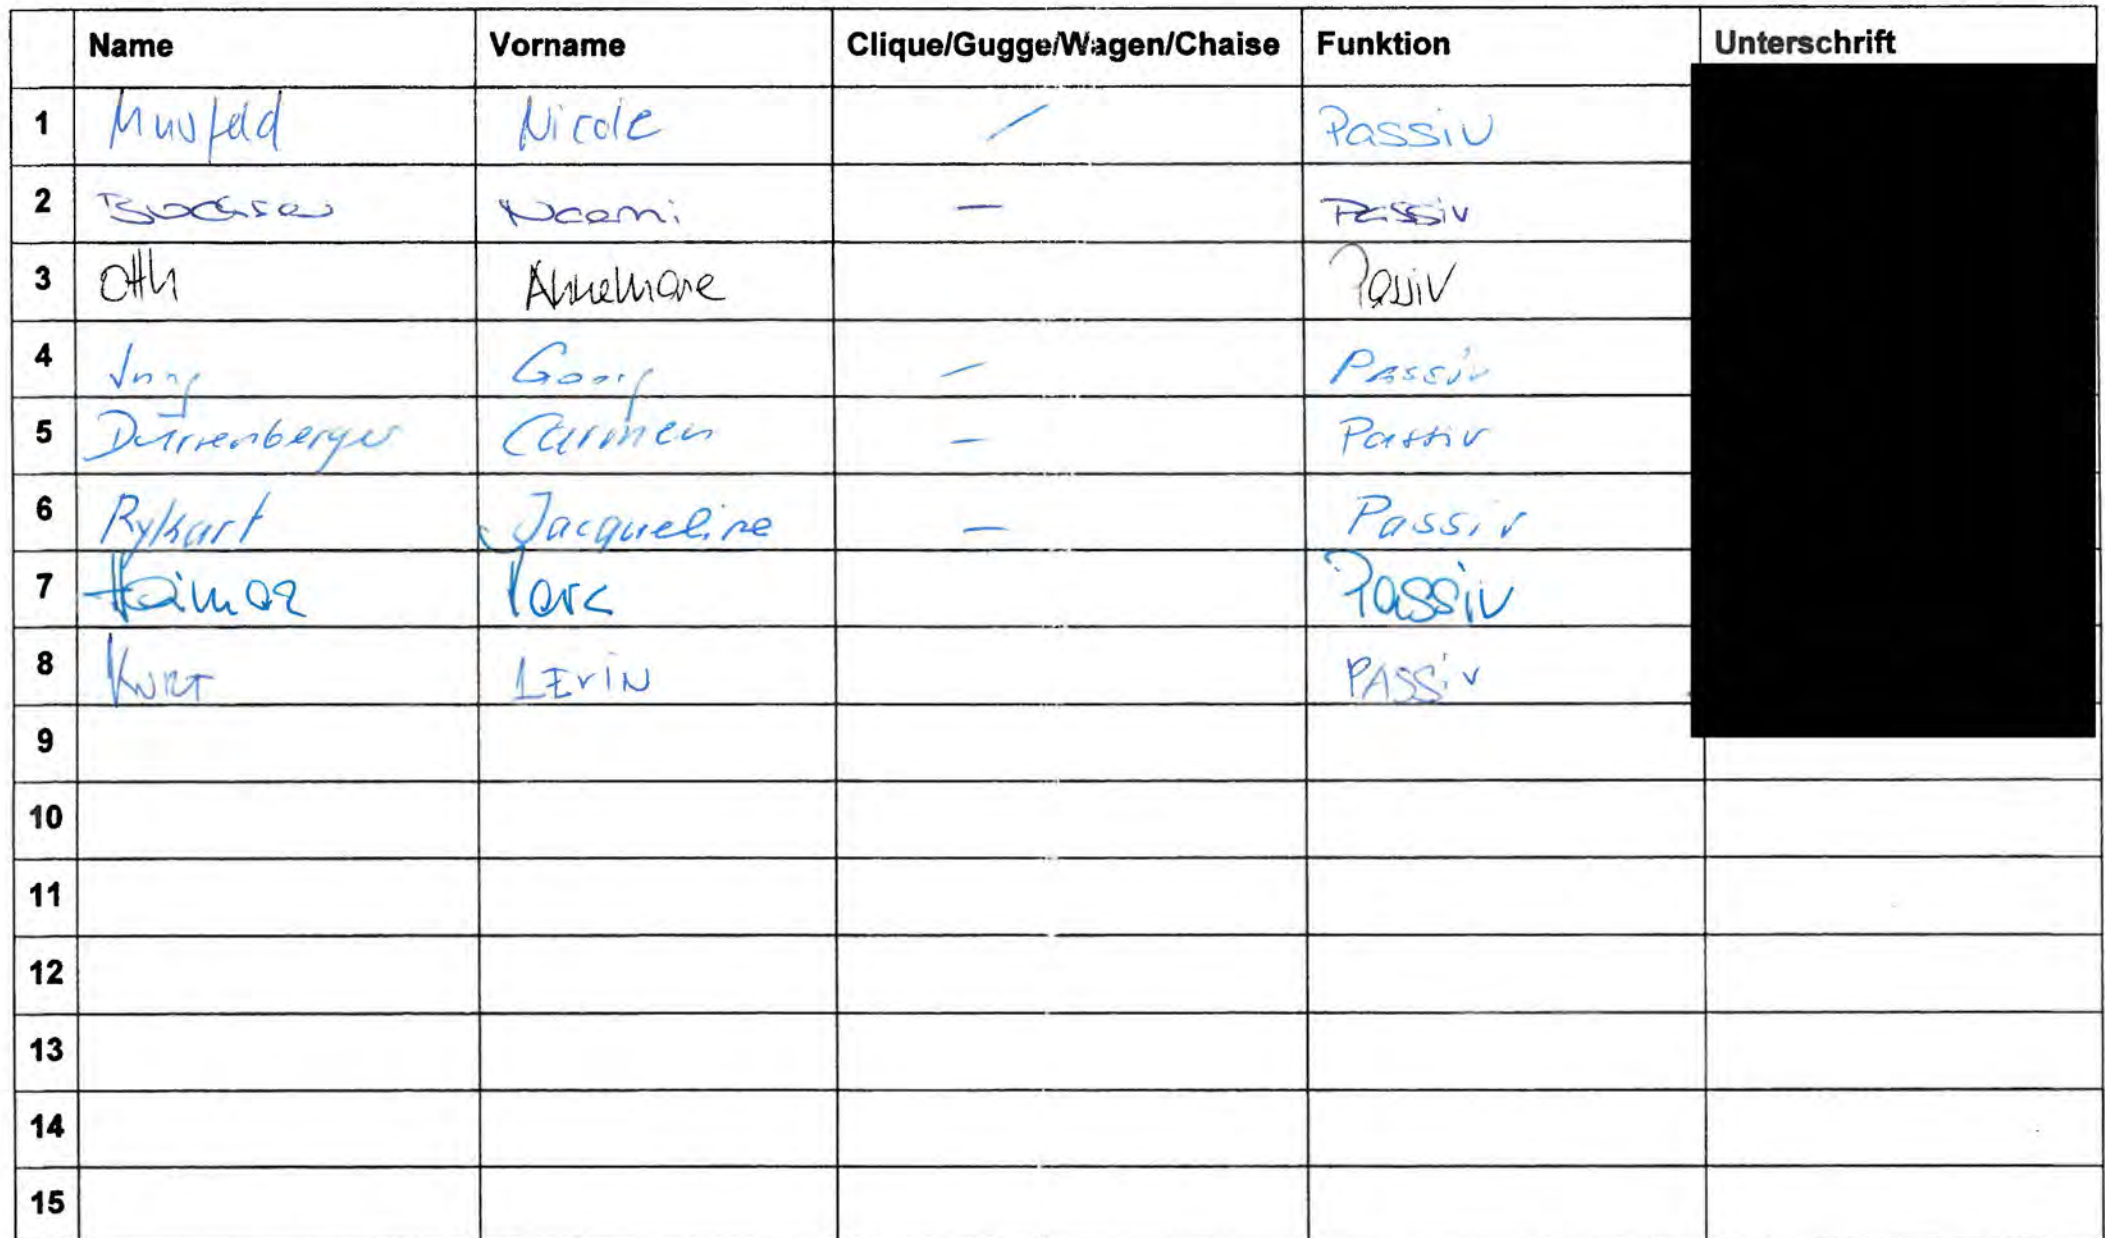 Name Vorname Clique/Gugge/Wagen/Chaise Funktion Unterschrift
1 Musfeld Nicole / Passiv
2 Buchser Naomi – Passiv
3 Oth Annemarie Passiv
4 Jung Georg – Passiv
5 Dürrenberger Carmen – Passiv
6 Rykart Jacqueline – Passiv
7 Marc Passiv
8 KURT LEVIN PASSiv
9
10
11
12
13
14
15